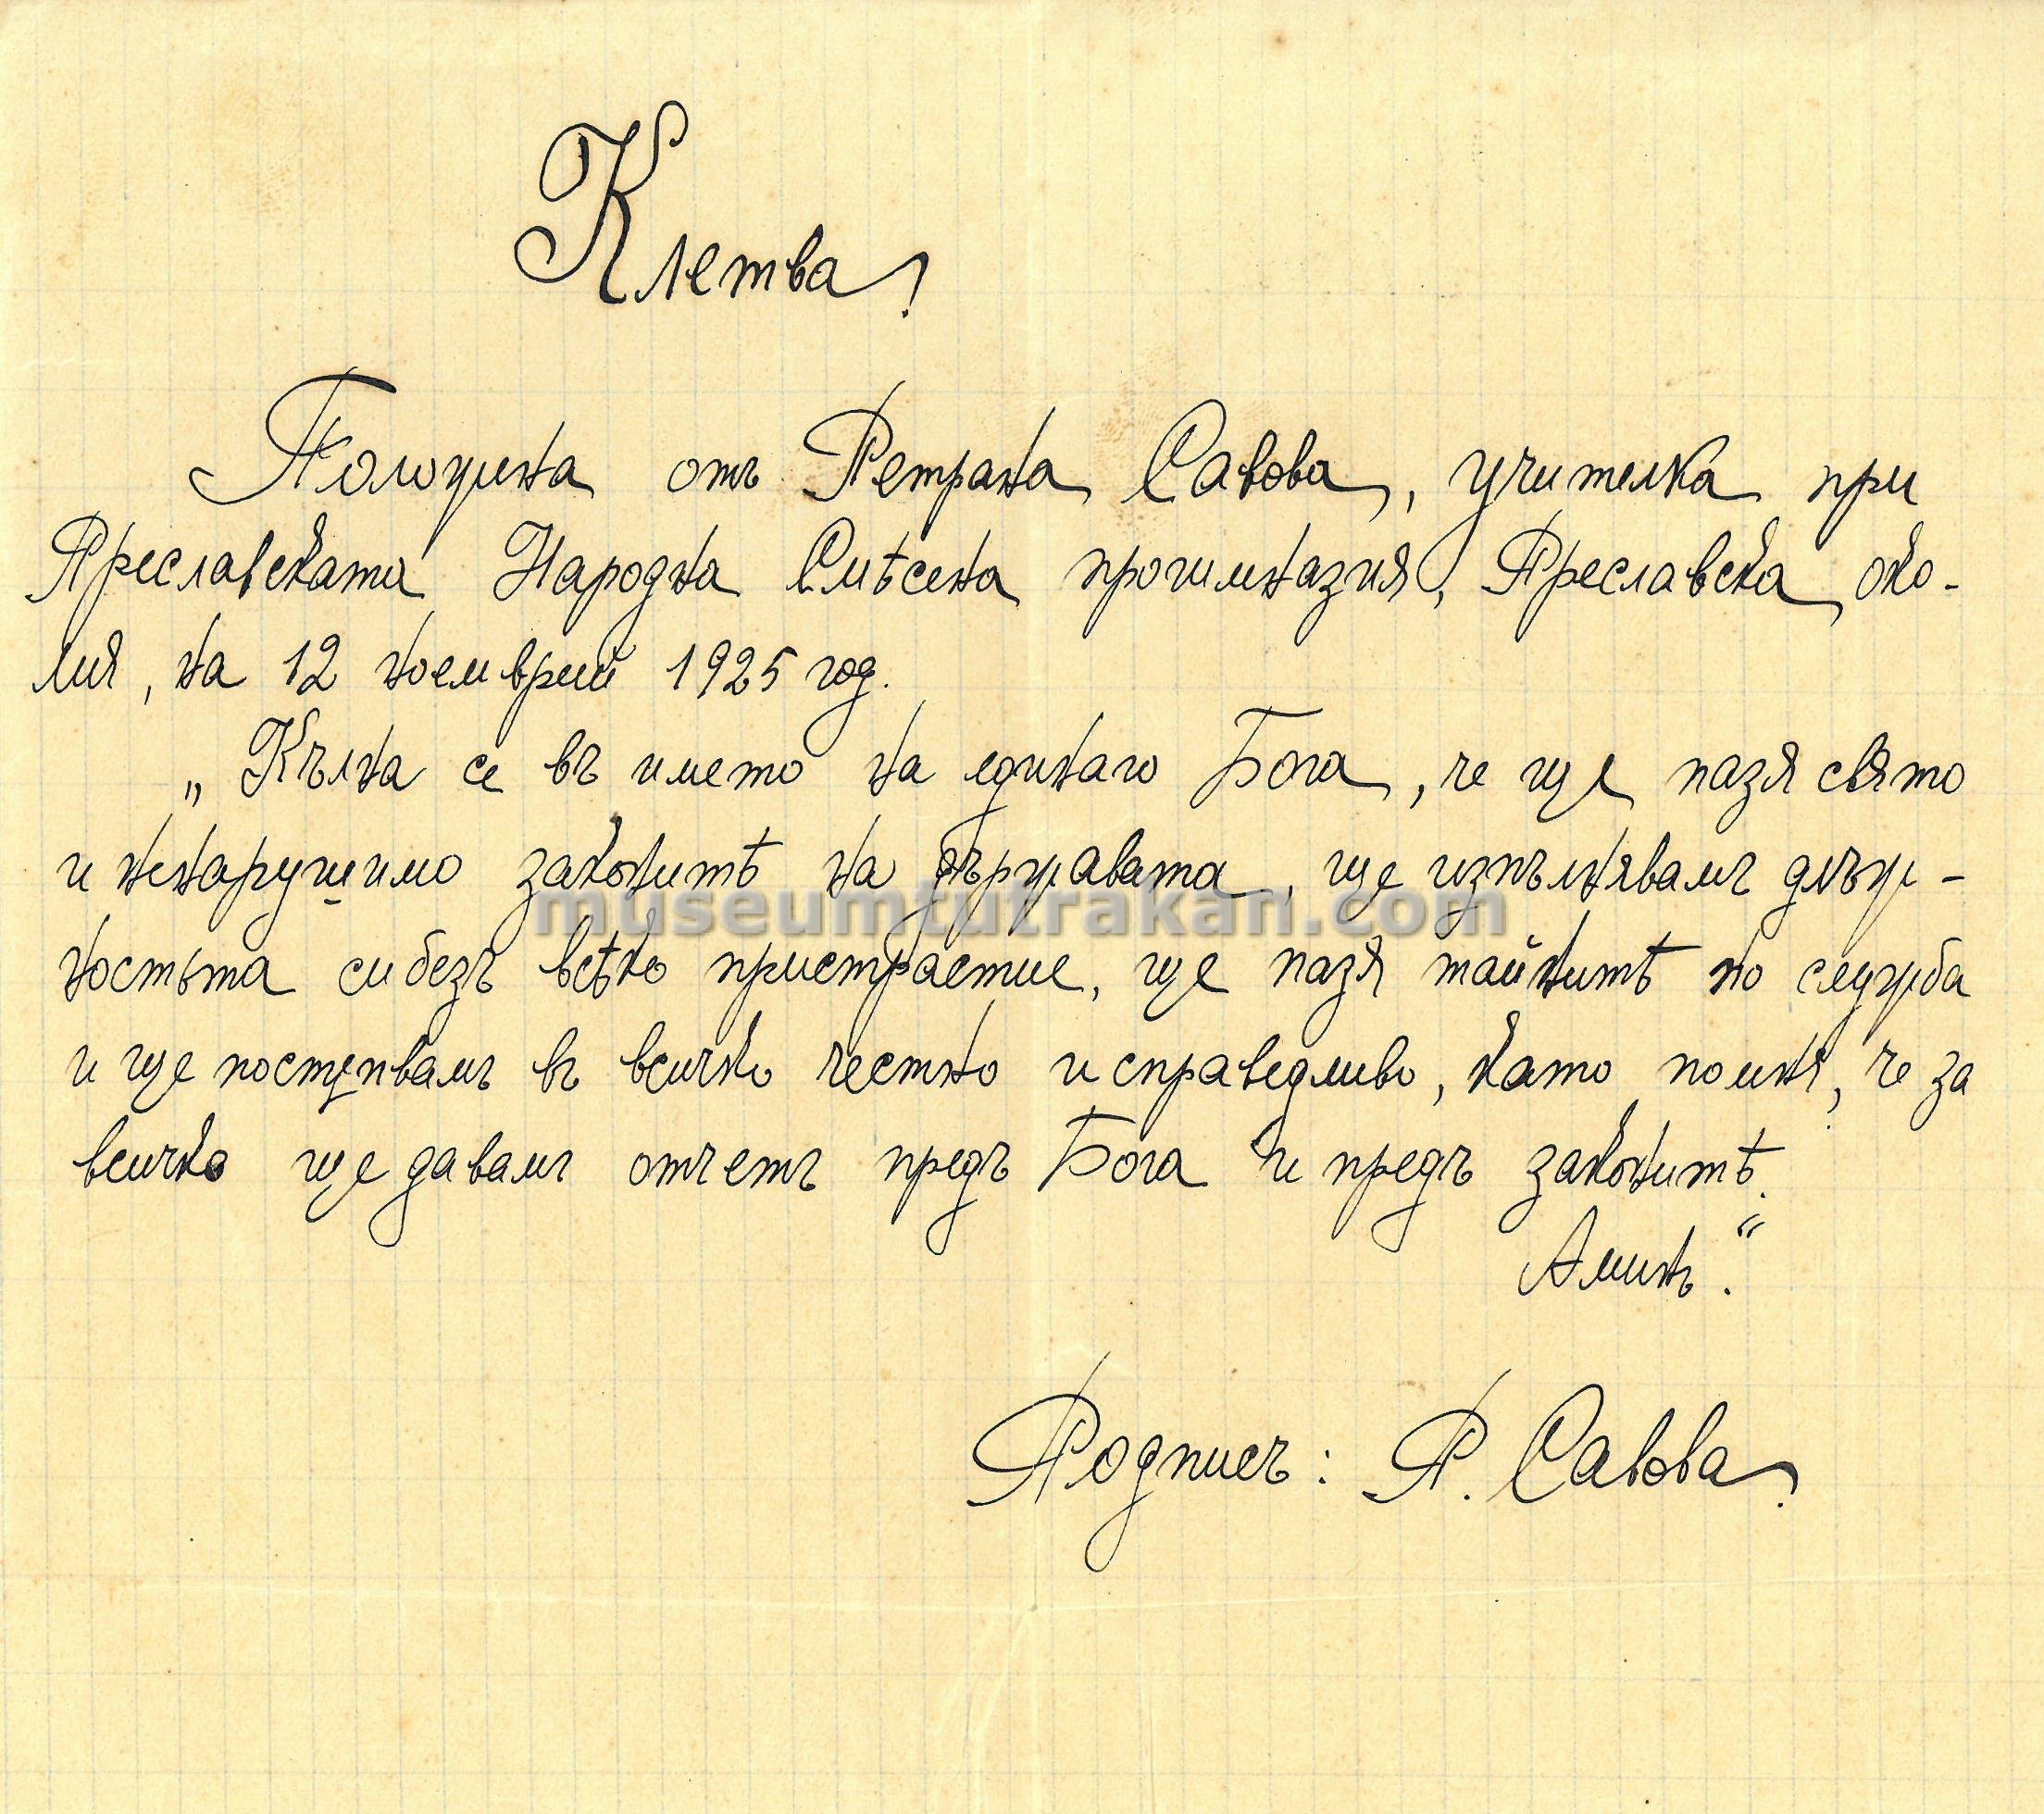 Клетва!
Положена отъ Петрана Савова, учителка при
Преславската Народна Смѣсена прогимназия, Преславска око-
лия, на 12 ноемврий 1925 год.
„Кълна се въ името на единаго Бога, че ще пазя свято
и ненарушимо законитѣ на държавата, ще изпълнявамъ длъж-
ностьта си безъ всѣко пристрастие, ще пазя тайнитѣ по служба
и ще постѫпвамъ въ всичко честно и справедливо, като помня, че за
всичко ще давамъ отчетъ предъ Бога и предъ законитѣ.
Аминь.“
Подписъ: П. Савова.
museumtutrakan.com